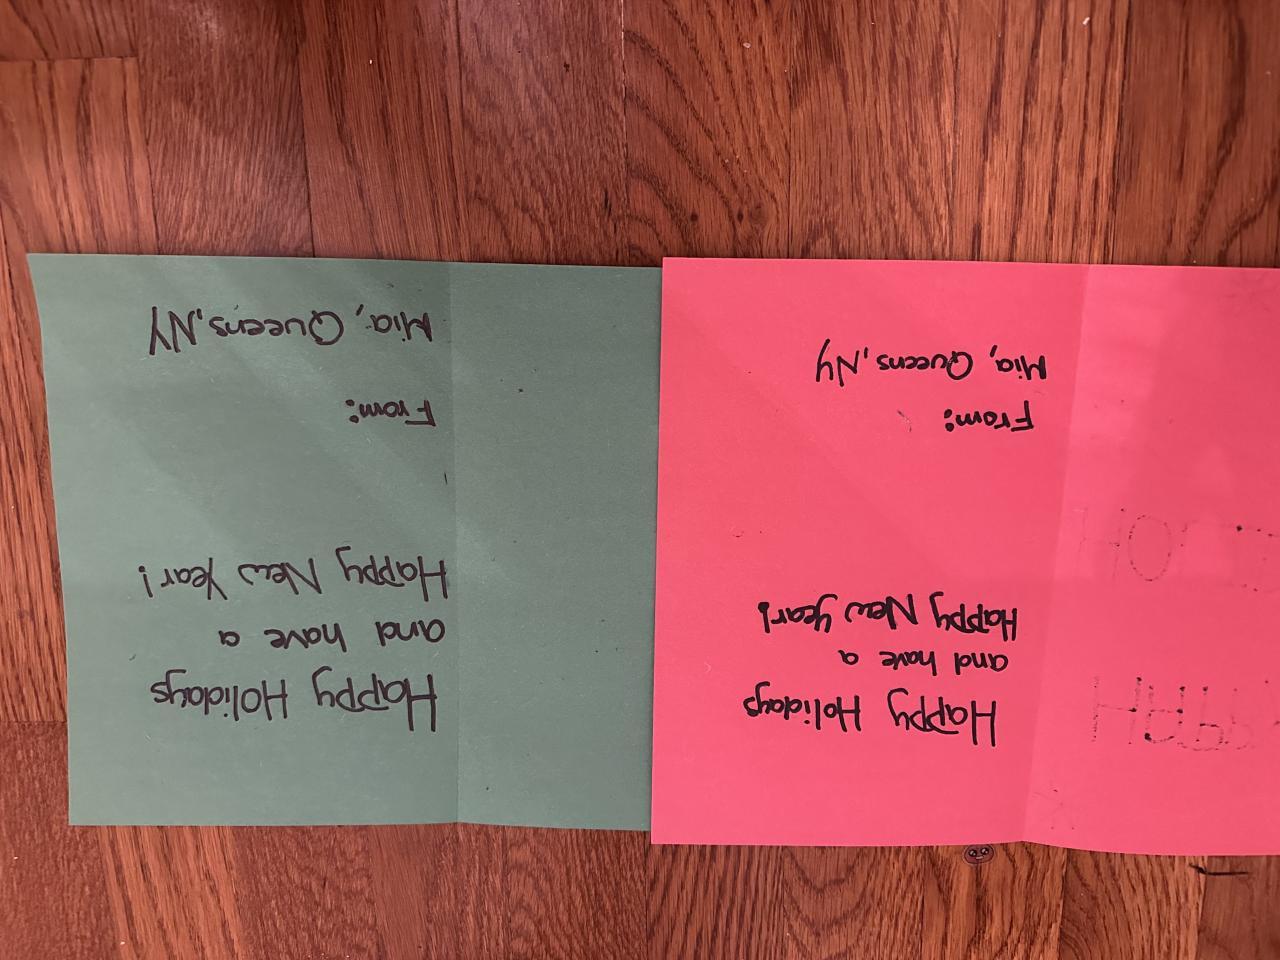 Happy Holidays
and have a
Happy New Year!
From:
Mia, Queens, NY
Happy Holidays
and have a
Happy New Year!
From:
Mia, Queens, NY